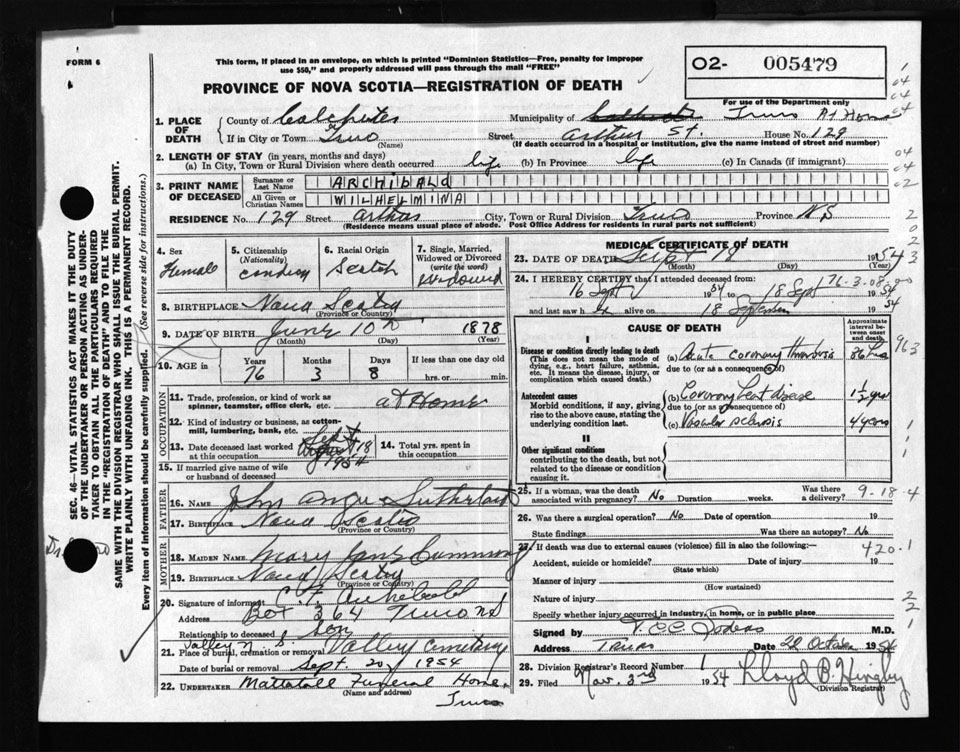 FORM 6
This form, if placed in an envelope, on which is printed "Dominion Statistics—Free, penalty for improper
use $50," and properly addressed will pass through the mail "FREE"
O2- 005479
PROVINCE OF NOVA SCOTIA—REGISTRATION OF DEATH
For use of the Department only
1. PLACE OF DEATH
County of Colchester Municipality of Truro At Home
If in City or Town Truro Street Arthur St. House No. 129
(Name) (If death occurred in a hospital or institution, give the name instead of street and number)
2. LENGTH OF STAY (in years, months and days)
(a) In City, Town or Rural Division where death occurred life (b) In Province life (c) In Canada (if immigrant)
3. PRINT NAME OF DECEASED
Surname or Last Name ARCHIBALD
All Given or Christian Names WILHELMINA
RESIDENCE No. 129 Street Arthur City, Town or Rural Division Truro Province N S
(Residence means usual place of abode. Post Office Address for residents in rural parts not sufficient)
4. Sex Female
5. Citizenship (Nationality)
6. Racial Origin Scotch
7. Single, Married, Widowed or Divorced (write the word) Widowed
8. BIRTHPLACE Nova Scotia
(Province or Country)
9. DATE OF BIRTH June 10th 1878
(Month) (Day) (Year)
10. AGE in Years Months Days If less than one day old
76 3 8 hrs. or min.
OCCUPATION
11. Trade, profession, or kind of work as spinner, teamster, office clerk, etc. at Home
12. Kind of industry or business, as cotton-mill, lumbering, bank, etc.
13. Date deceased last worked at this occupation Sept 18 1954
14. Total yrs. spent in this occupation
15. If married give name of wife or husband of deceased
FATHER
16. NAME John Angus Sutherland
17. BIRTHPLACE Nova Scotia
(Province or Country)
MOTHER
18. MAIDEN NAME Mary Jane
19. BIRTHPLACE Nova Scotia
(Province or Country)
20. Signature of informant C. F. Archibald
Address Box 364 Truro NS
Relationship to deceased Son
21. Place of burial, cremation or removal Valley Cemetery
Valley N. S.
Date of burial or removal Sept. 20 1954
22. UNDERTAKER Mattatall Funeral Home,
(Name and address) Truro
MEDICAL CERTIFICATE OF DEATH
23. DATE OF DEATH Sept 18 1954
(Month) (Day) (Year)
24. I HEREBY CERTIFY that I attended deceased from
16 Sept 1954 to 18 Sept 1954
and last saw h er alive on 18 September 1954
76-3-08
CAUSE OF DEATH
Approximate interval between onset and death
I
Disease or condition directly leading to death
(This does not mean the mode of dying, e.g., heart failure, asthenia, etc. It means the disease, injury, or complication which caused death.)
(a) Acute coronary thrombosis
due to (or as a consequence of)
Antecedent causes
Morbid conditions, if any, giving rise to the above cause, stating the underlying condition last.
(b) Coronary heart disease 1½ yrs
due to (or as a consequence of)
(c) Vascular sclerosis 4 years
II
Other significant conditions
contributing to the death, but not related to the disease or condition causing it.
25. If a woman, was the death associated with pregnancy? No Duration weeks. Was there a delivery?
9-18-4
26. Was there a surgical operation? No Date of operation 19
State findings Was there an autopsy? No
27. If death was due to external causes (violence) fill in also the following:—
420.1
Accident, suicide or homicide? Date of injury 19
(State which)
Manner of injury
(How sustained)
Nature of injury
Specify whether injury occurred in industry, in home, or in public place
Signed by M.D.
Address Truro Date 22 October 1954
28. Division Registrar's Record Number 1
29. Filed Nov. 3rd 1954 Lloyd B. Hingley
(Division Registrar)
SEC. 46—VITAL STATISTICS ACT MAKES IT THE DUTY
OF THE UNDERTAKER OR PERSON ACTING AS UNDER-
TAKER TO OBTAIN ALL THE PARTICULARS REQUIRED
IN THE "REGISTRATION OF DEATH" AND TO FILE THE
SAME WITH THE DIVISION REGISTRAR WHO SHALL ISSUE THE BURIAL PERMIT.
WRITE PLAINLY WITH UNFADING INK. THIS IS A PERMANENT RECORD.
Every item of information should be carefully supplied. (See reverse side for instructions.)